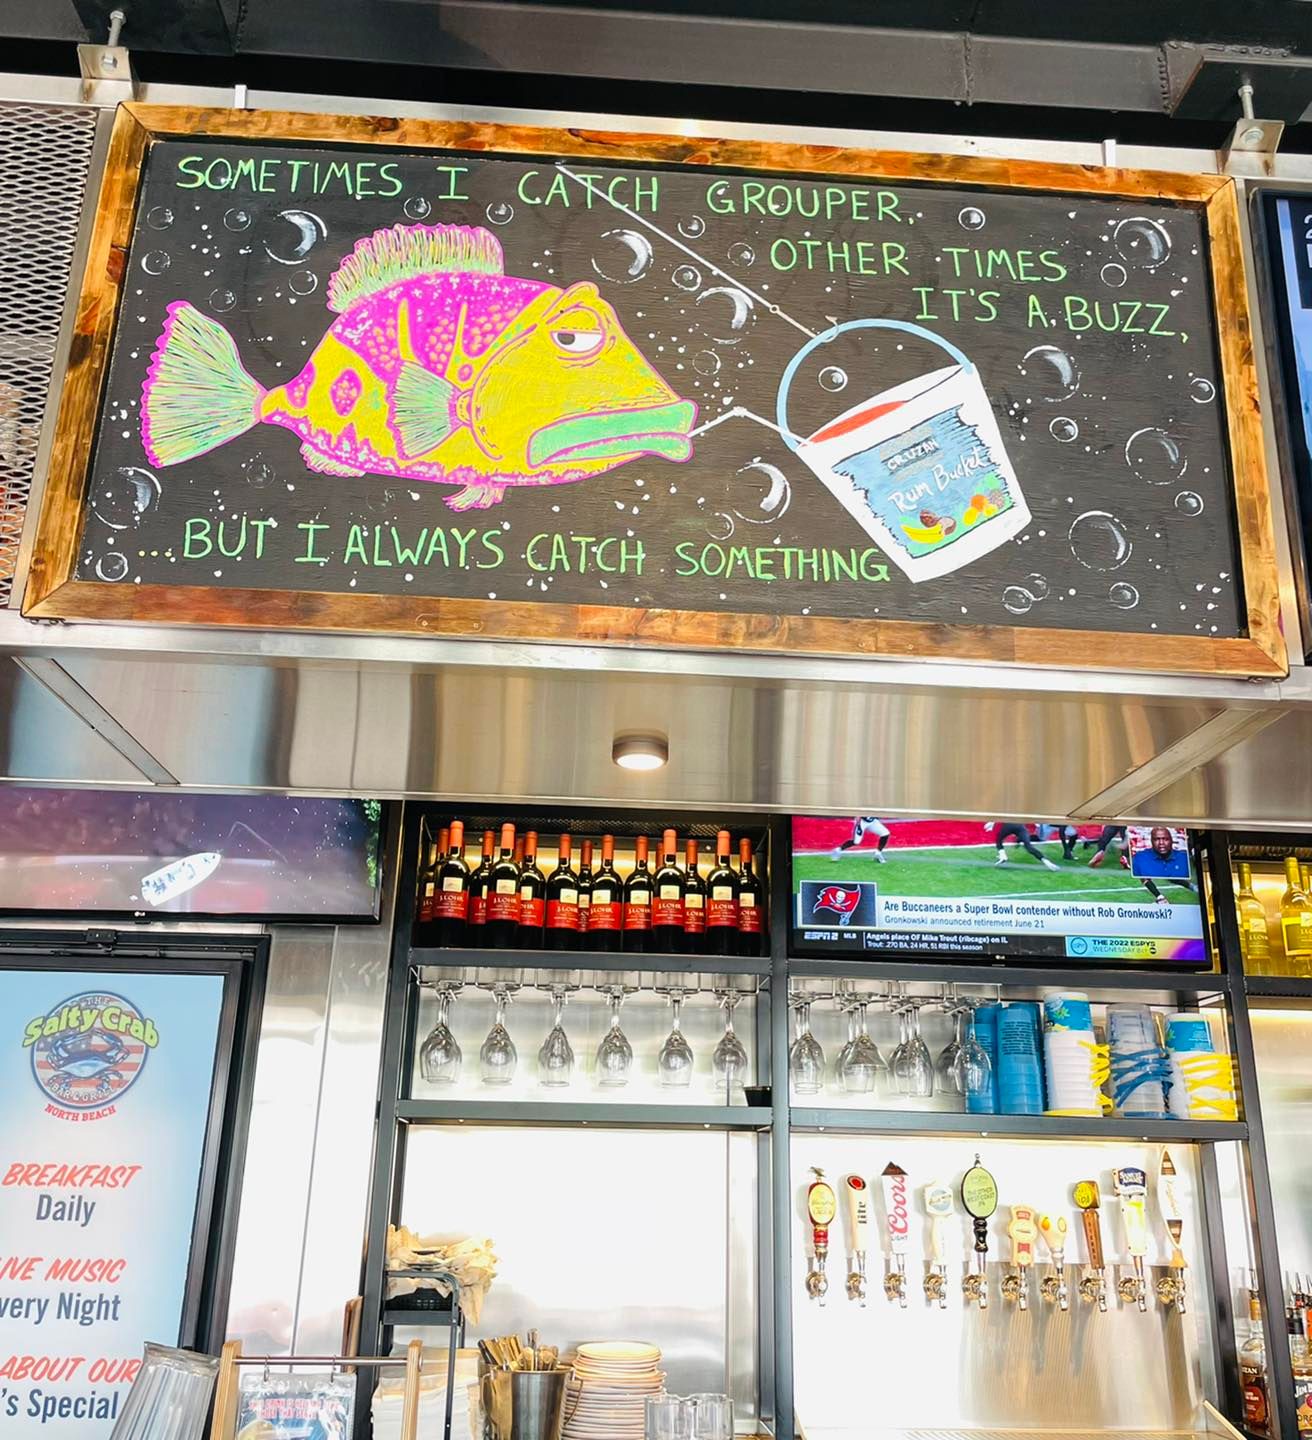 SOMETIMES I CATCH GROUPER,
OTHER TIMES
IT'S A BUZZ,
CRUZAN
Rum Bucket
...BUT I ALWAYS CATCH SOMETHING
J.LOHR
Are Buccaneers a Super Bowl contender without Rob Gronkowski?
Gronkowski announced retirement June 21
ESPN2 MLB Angels place OF Mike Trout (ribcage) on IL
Trout: .270 BA, 24 HR, 51 RBI this season
THE 2022 ESPYS
THE
Salty Crab
BAR & GRILL
NORTH BEACH
BREAKFAST
Daily
LIVE MUSIC
Every Night
ABOUT OUR
's Special
Lite
Coors
LIGHT